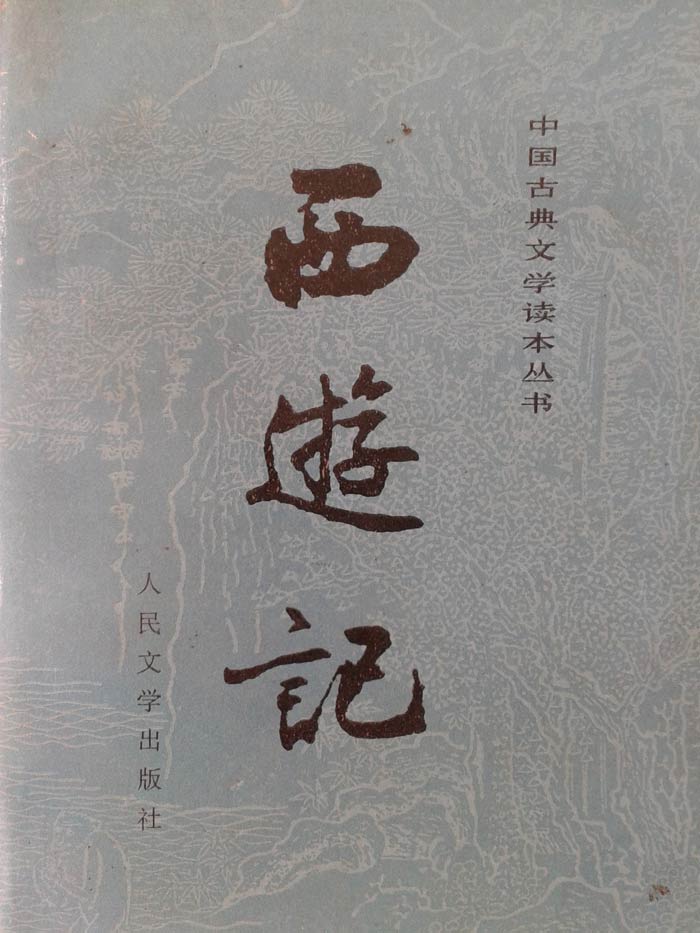 中国古典文学读本丛书
西遊記
人民文学出版社